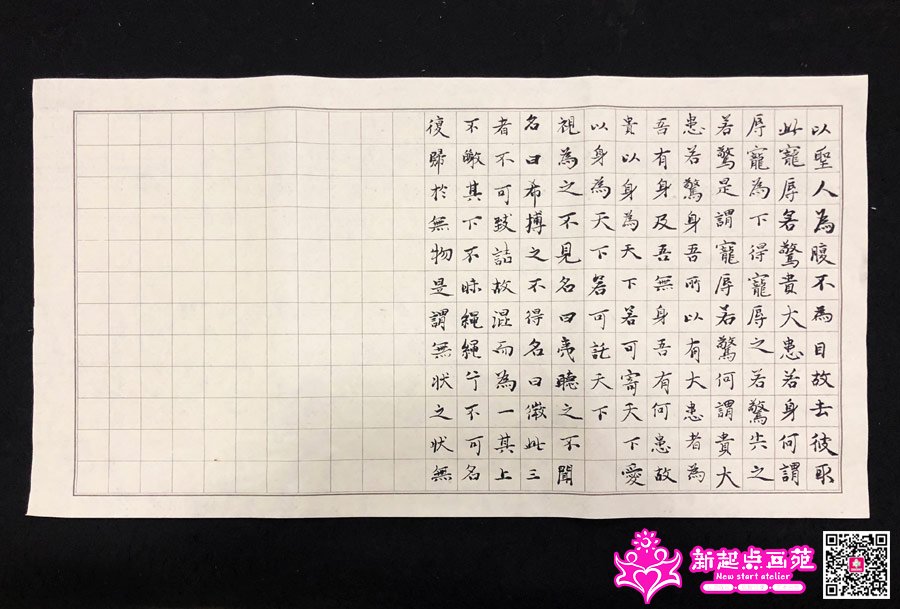 以聖人為腹不為目故去彼取
此寵辱若驚貴大患若身何謂
辱寵為下得寵辱之若驚失之
若驚是謂寵辱若驚何謂貴大
患若驚身吾所以有大患者為
吾有身及吾無身吾有何患故
貴以身為天下若可寄天下愛
以身為天下若可託天下
視為之不見名曰夷聽之不聞
名曰希搏之不得名曰微此三
者不可致詰故混而為一其上
不皦其下不昧繩繩兮不可名
復歸於無物是謂無狀之狀無
新起点画苑
New start atelier